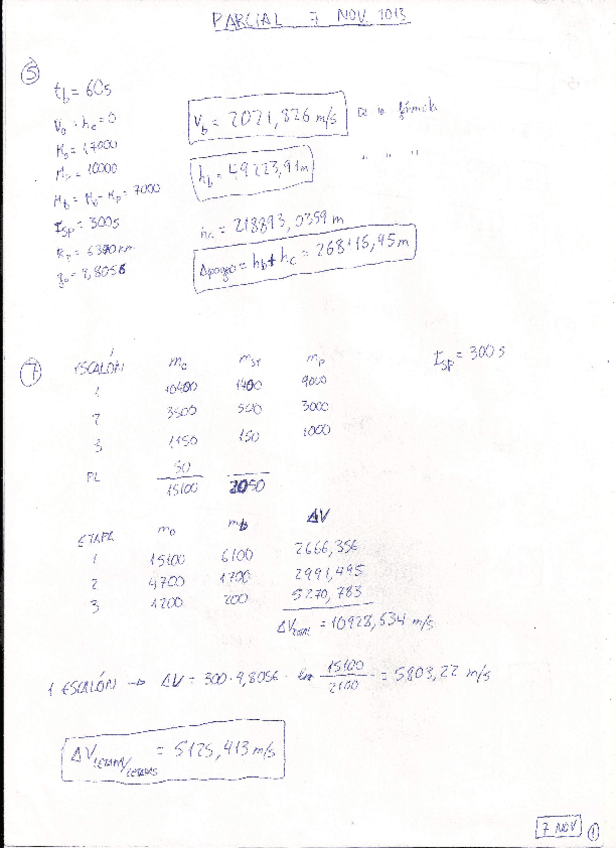 PARCIAL 7 NOV. 2013
5
t_b = 60s
V_0 = h_c = 0
M_0 = 17000
M_p = 10000
M_b = M_0 - M_p = 7000
I_sp = 300s
R_p = 6370 km
g_0 = 9,8056
V_b = 2021,826 m/s
h_b = 49223,91 m
" " "
h_c = 218893,0359 m
Δapogeo = h_b + h_c = 268116,95 m
7
ESCALÓN m_0 m_ST m_p
1 10400 1400 9000
2 3500 500 3000
3 1150 150 1000
PL 50
15100 2050
I_sp = 300 s
ETAPA m_0 m_b ΔV
1 15100 6100 2666,356
2 4700 1700 2991,495
3 1200 200 5270,783
ΔV_total = 10928,634 m/s
1 ESCALÓN → ΔV = 300 · 9,8056 · ln 15100/2100 = 5803,22 m/s
ΔV = 5125,413 m/s
7 NOV 1